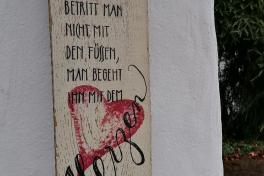 BETRITT MAN
NICHT MIT
DEN FÜSSEN,
MAN BEGEHT
IHN MIT DEM
Herzen